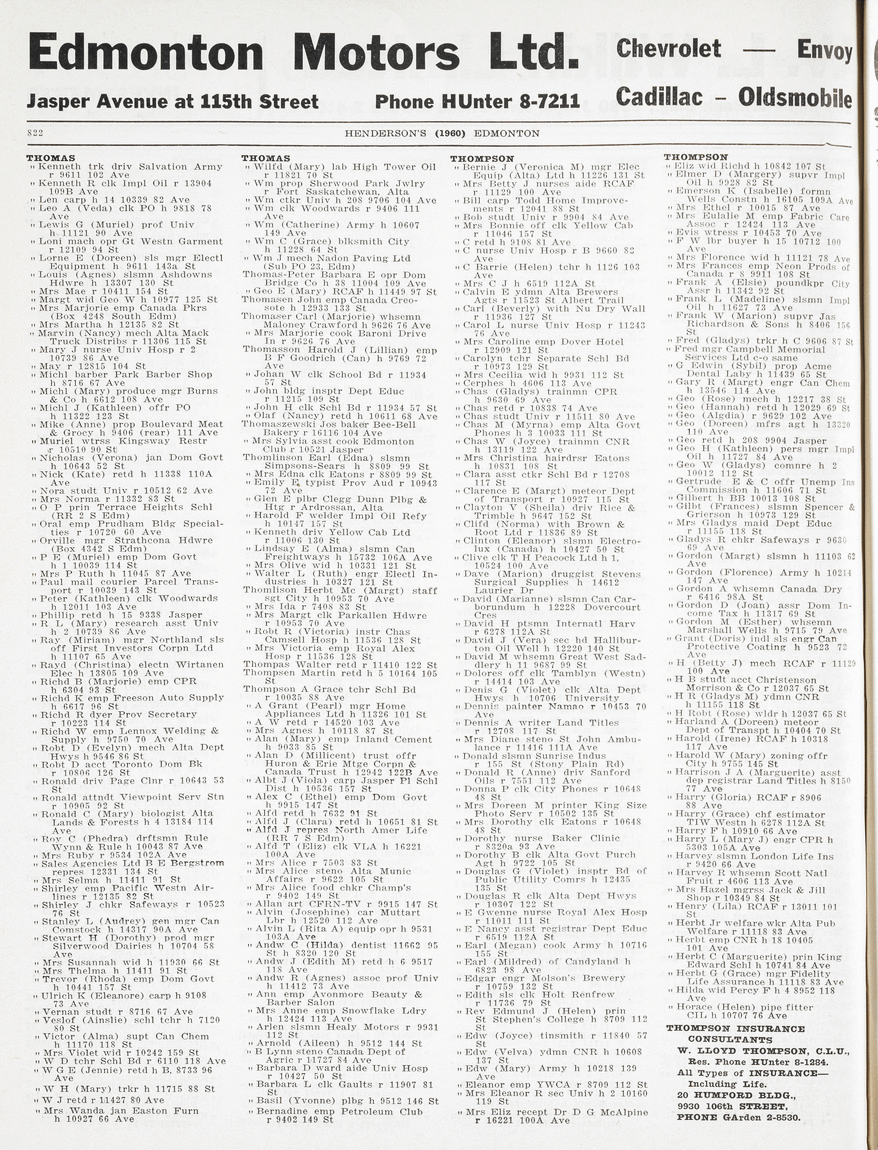 Edmonton Motors Ltd. Chevrolet — Envoy
Jasper Avenue at 115th Street Phone HUnter 8-7211 Cadillac – Oldsmobile
822 HENDERSON'S (1960) EDMONTON
THOMAS
" Kenneth trk driv Salvation Army
r 9611 102 Ave
" Kenneth R clk Impl Oil r 13904
109B Ave
" Len carp h 14 10339 82 Ave
" Leo A (Veda) clk PO h 9818 78
Ave
" Lewis G (Muriel) prof Univ
h 11121 90 Ave
" Loni mach opr Gt Westn Garment
r 12109 94 St
" Lorne E (Doreen) sls mgr Electl
Equipment h 9611 143a St
" Louis (Agnes) slsmn Ashdowns
Hdwre h 13307 130 St
" Mrs Mae r 10411 154 St
" Margt wid Geo W h 10977 125 St
" Mrs Marjorie emp Canada Pkrs
(Box 4248 South Edm)
" Mrs Martha h 12135 82 St
" Marvin (Nancy) mech Alta Mack
Truck Distribs r 11306 115 St
" Mary J nurse Univ Hosp r 2
10739 86 Ave
" May r 12815 104 St
" Michl barber Park Barber Shop
h 8716 67 Ave
" Michl (Mary) produce mgr Burns
& Co h 6612 108 Ave
" Michl J (Kathleen) offr PO
h 11322 123 St
" Mike (Anne) prop Boulevard Meat
& Grocy h 9406 (rear) 111 Ave
" Muriel wtrss Kingsway Restr
r 10510 90 St
" Nicholas (Verona) jan Dom Govt
h 10643 52 St
" Nick (Kate) retd h 11338 110A
Ave
" Nora studt Univ r 10512 62 Ave
" Mrs Norma r 11332 83 St
" O P prin Terrace Heights Schl
(RR 2 S Edm)
" Oral emp Prudham Bldg Special-
ties r 10720 60 Ave
" Orville mgr Strathcona Hdwre
(Box 4342 S Edm)
" P E (Muriel) emp Dom Govt
h 1 10039 114 St
" Mrs P Ruth h 11045 87 Ave
" Paul mail courier Parcel Trans-
port r 10039 143 St
" Peter (Kathleen) clk Woodwards
h 12011 103 Ave
" Phillip retd h 15 9338 Jasper
" R L (Mary) research asst Univ
h 2 10739 86 Ave
" Ray (Miriam) mgr Northland sls
off First Investors Corpn Ltd
h 11107 65 Ave
" Rayd (Christina) electn Wirtanen
Elec h 13805 109 Ave
" Richd B (Marjorie) emp CPR
h 6304 93 St
" Richd K emp Freeson Auto Supply
h 6617 96 St
" Richd R dyer Prov Secretary
r 10223 114 St
" Richd W emp Lennox Welding &
Supply h 9750 70 Ave
" Robt D (Evelyn) mech Alta Dept
Hwys h 9546 86 St
" Robt D acct Toronto Dom Bk
r 10806 126 St
" Ronald driv Page Clnr r 10643 53
St
" Ronald attndt Viewpoint Serv Stn
r 10905 92 St
" Ronald C (Mary) biologist Alta
Lands & Forests h 4 13184 114
Ave
" Roy C (Phedra) drftsmn Rule
Wynn & Rule h 10043 87 Ave
" Mrs Ruby r 9534 102A Ave
" Sales Agencies Ltd B E Bergstrom
repres 12331 134 St
" Mrs Selma h 11411 91 St
" Shirley emp Pacific Westn Air-
lines r 12135 82 St
" Shirley J chkr Safeways r 10523
76 St
" Stanley L (Audrey) gen mgr Can
Comstock h 14317 90A Ave
" Stewart H (Dorothy) prod mgr
Silverwood Dairies h 10704 58
Ave
" Mrs Susannah wid h 11930 66 St
" Mrs Thelma h 11411 91 St
" Trevor (Rhoda) emp Dom Govt
h 10441 157 St
" Ulrich K (Eleanore) carp h 9108
73 Ave
" Vernan studt r 8716 67 Ave
" Veslof (Ainslie) schl tchr h 7120
80 St
" Victor (Alma) supt Can Chem
h 11170 118 St
" Mrs Violet wid r 10242 159 St
" W D tchr Schl Bd r 6110 118 Ave
" W G E (Jennie) retd h B, 8733 96
Ave
" W H (Mary) trkr h 11715 88 St
" W J retd r 11427 80 Ave
" Mrs Wanda jan Easton Furn
h 10927 66 Ave
THOMAS
" Wilfd (Mary) lab High Tower Oil
r 11821 70 St
" Wm prop Sherwood Park Jwlry
r Fort Saskatchewan, Alta
" Wm ctkr Univ h 208 9706 104 Ave
" Wm clk Woodwards r 9406 111
Ave
" Wm (Catherine) Army h 10607
149 Ave
" Wm C (Grace) blksmith City
h 11228 64 St
" Wm J mech Nadon Paving Ltd
(Sub PO 23, Edm)
Thomas-Peter Barbara E opr Dom
Bridge Co h 38 11004 109 Ave
" Geo E (Mary) RCAF h 11449 97 St
Thomasen John emp Canada Creo-
sote h 12933 133 St
Thomaser Carl (Marjorie) whsemn
Maloney Crawford h 9626 76 Ave
" Mrs Marjorie cook Baroni Drive
In r 9626 76 Ave
Thomasson Harold J (Lillian) emp
B F Goodrich (Can) h 9769 72
Ave
" Johan W clk School Bd r 11934
57 St
" John bldg insptr Dept Educ
r 11215 109 St
" John H clk Schl Bd r 11934 57 St
" Olaf (Nancy) retd h 10611 68 Ave
Thomaszewski Jos baker Bee-Bell
Bakery r 16116 104 Ave
" Mrs Sylvia asst cook Edmonton
Club r 10521 Jasper
Thomlinson Earl (Edna) slsmn
Simpsons-Sears h 8809 99 St
" Mrs Edna clk Eatons r 8809 99 St
" Emily E typist Prov Aud r 10943
72 Ave
" Glen E plbr Clegg Dunn Plbg &
Htg r Ardrossan, Alta
" Harold F welder Impl Oil Refy
h 10147 157 St
" Kenneth driv Yellow Cab Ltd
r 11006 130 St
" Lindsay E (Alma) slsmn Can
Freightways h 15732 106A Ave
" Mrs Olive wid h 10331 121 St
" Walter L (Ruth) engr Electl In-
dustries h 10327 121 St
Thomlison Herbt Mc (Margt) staff
sgt City h 10953 70 Ave
" Mrs Ida r 7408 83 St
" Mrs Margt clk Parkallen Hdwre
r 10953 70 Ave
" Robt R (Victoria) instr Chas
Camsell Hosp h 11536 128 St
" Mrs Victoria emp Royal Alex
Hosp r 11536 128 St
Thompas Walter retd r 11410 122 St
Thompsen Martin retd h 5 10164 105
St
Thompson A Grace tchr Schl Bd
r 10035 88 Ave
" A Grant (Pearl) mgr Home
Appliances Ltd h 11326 101 St
" A W retd r 14520 103 Ave
" Mrs Agnes h 10118 87 St
" Alan (Mary) emp Inland Cement
h 9033 85 St
" Alan D (Millicent) trust offr
Huron & Erie Mtge Corpn &
Canada Trust h 12942 122B Ave
" Albt J (Viola) carp Jasper Pl Schl
Dist h 10536 157 St
" Alex C (Ethel) emp Dom Govt
h 9915 147 St
" Alfd retd h 7632 91 St
" Alfd J (Clara) retd h 10651 81 St
" Alfd J repres North Amer Life
(RR 7 S Edm)
" Alfd T (Eliz) clk VLA h 16221
100A Ave
" Mrs Alice r 7503 83 St
" Mrs Alice steno Alta Munic
Affairs r 9622 105 St
" Mrs Alice food chkr Champ's
r 9402 149 St
" Allan art CFRN-TV r 9915 147 St
" Alvin (Josephine) car Muttart
Lbr h 12520 112 Ave
" Alvin L (Rita A) equip opr h 9531
103A Ave
" Andw C (Hilda) dentist 11662 95
St h 8320 120 St
" Andw J (Edith M) retd h 6 9517
118 Ave
" Andw R (Agnes) assoc prof Univ
h 11412 73 Ave
" Ann emp Avonmore Beauty &
Barber Salon
" Mrs Anne emp Snowflake Ldry
h 12424 113 Ave
" Arlen slsmn Healy Motors r 9931
112 St
" Arnold (Aileen) h 9512 144 St
" B Lynn steno Canada Dept of
Agric r 11727 84 Ave
" Barbara D ward aide Univ Hosp
r 10427 50 St
" Barbara L clk Gaults r 11907 81
St
" Basil (Yvonne) plbg h 9512 146 St
" Bernadine emp Petroleum Club
r 9402 149 St
THOMPSON
" Bernie J (Veronica M) mgr Elec
Equip (Alta) Ltd h 11226 131 St
" Mrs Betty J nurses aide RCAF
r 11129 100 Ave
" Bill carp Todd Home Improve-
ments r 12041 88 St
" Bob studt Univ r 9904 84 Ave
" Mrs Bonnie off clk Yellow Cab
r 11046 157 St
" C retd h 9108 81 Ave
" C nurse Univ Hosp r B 9660 82
Ave
" C Barrie (Helen) tchr h 1126 103
Ave
" Mrs C J h 6519 112A St
" Calvin E ydmn Alta Brewers
Agts r 11523 St Albert Trail
" Carl (Beverly) with Nu Dry Wall
r 11936 127 St
" Carol L nurse Univ Hosp r 11243
76 Ave
" Mrs Caroline emp Dover Hotel
r 12909 121 St
" Carolyn tchr Separate Schl Bd
r 10973 129 St
" Mrs Cecilia wid h 9931 112 St
" Cerphes h 4606 113 Ave
" Chas (Gladys) trainmn CPR
h 9630 69 Ave
" Chas retd r 10838 74 Ave
" Chas studt Univ r 11511 80 Ave
" Chas M (Myrna) emp Alta Govt
Phones h 3 10033 111 St
" Chas W (Joyce) trainmn CNR
h 13119 122 Ave
" Mrs Christina hairdrsr Eatons
h 10831 108 St
" Clara asst ctkr Schl Bd r 12708
117 St
" Clarence E (Margt) meteor Dept
of Transport r 10927 115 St
" Clayton V (Sheila) driv Rice &
Trimble h 9647 152 St
" Clifd (Norma) with Brown &
Root Ltd r 11836 89 St
" Clinton (Eleanor) slsmn Electro-
lux (Canada) h 10427 50 St
" Clive clk T H Peacock Ltd h 1,
10524 100 Ave
" Dave (Marion) druggist Stevens
Surgical Supplies h 14612
Laurier Dr
" David (Marianne) slsmn Can Car-
borundum h 12228 Dovercourt
Cres
" David H ptsmn Internatl Harv
r 6278 112A St
" David J (Vera) sec hd Hallibur-
ton Oil Well h 12220 140 St
" David M whsemn Great West Sad-
dlery h 11 9687 99 St
" Dolores off clk Tamblyn (Westn)
r 14414 103 Ave
" Denis G (Violet) clk Alta Dept
Hwys h 10706 University
" Dennis painter Namao r 10453 70
Ave
" Dennis A writer Land Titles
r 12708 117 St
" Mrs Diane steno St John Ambu-
lance r 11416 111A Ave
" Donald slsmn Sunrise Indus
r 155 St (Stony Plain Rd)
" Donald R (Anne) driv Sanford
Oils r 7551 112 Ave
" Donna P clk City Phones r 10648
48 St
" Mrs Doreen M printer King Size
Photo Serv r 10502 135 St
" Mrs Dorothy clk Eatons r 10648
48 St
" Dorothy nurse Baker Clinic
r 8320a 93 Ave
" Dorothy B clk Alta Govt Purch
Agt h 9722 105 St
" Douglas G (Violet) insptr Bd of
Public Utility Comrs h 12435
135 St
" Douglas R clk Alta Dept Hwys
r 10307 122 St
" E Gwenne nurse Royal Alex Hosp
r 11011 111 St
" E Nancy asst registrar Dept Educ
r 6519 112A St
" Earl (Megan) cook Army h 10716
155 St
" Earl (Mildred) of Candyland h
6823 98 Ave
" Edgar engr Molson's Brewery
r 10759 132 St
" Edith sls clk Holt Renfrew
r 11736 79 St
" Rev Edmund J (Helen) prin
St Stephen's College h 8709 112
St
" Edw (Joyce) tinsmith r 11840 57
St
" Edw (Velva) ydmn CNR h 10608
137 St
" Edw (Mary) Army h 10218 139
Ave
" Eleanor emp YWCA r 8709 112 St
" Mrs Eleanor R sec Univ h 2 10160
119 St
" Mrs Eliz recept Dr D G McAlpine
r 16221 100A Ave
THOMPSON
" Eliz wid Richd h 10842 107 St
" Elmer D (Margery) supvr Impl
Oil h 9928 82 St
" Emerson K (Isabelle) formn
Wells Constn h 16105 109A Ave
" Mrs Ethel r 10015 87 Ave
" Mrs Eulalie M emp Fabric Care
Assoc r 12424 113 Ave
" Evis wtress r 10453 70 Ave
" F W lbr buyer h 15 10712 100
Ave
" Mrs Florence wid h 11121 78 Ave
" Mrs Frances emp Neon Prods of
Canada r 8 9911 108 St
" Frank A (Elsie) poundkpr City
Assr h 11342 92 St
" Frank L (Madeline) slsmn Impl
Oil h 11627 73 Ave
" Frank W (Marion) supvr Jas
Richardson & Sons h 8406 156
St
" Fred (Gladys) trkr h C 9606 87 St
" Fred mgr Campbell Memorial
Services Ltd c-o same
" G Edwin (Sybil) prop Acme
Dental Laby h 11439 65 St
" Gary R (Margt) engr Can Chem
h 13546 114 Ave
" Geo (Rose) mech h 12217 38 St
" Geo (Hannah) retd h 12029 69 St
" Geo (Algdia) r 9629 102 Ave
" Geo (Doreen) mfrs agt h 13320
110 Ave
" Geo retd h 208 9904 Jasper
" Geo H (Kathleen) pers mgr Impl
Oil h 11727 84 Ave
" Geo W (Gladys) comnre h 2
10012 112 St
" Gertrude E & C offr Unemp Ins
Commission h 11606 71 St
" Gilbert h BB 10013 108 St
" Gilbt (Frances) slsmn Spencer &
Grierson h 10973 129 St
" Mrs Gladys maid Dept Educ
r 11155 118 St
" Gladys R chkr Safeways r 9630
69 Ave
" Gordon (Margt) slsmn h 11103 62
Ave
" Gordon (Florence) Army h 10214
147 Ave
" Gordon A whsemn Canada Dry
r 6416 98A St
" Gordon D (Joan) assr Dom In-
come Tax h 11317 69 St
" Gordon M (Esther) whsemn
Marshall Wells h 9715 79 Ave
" Grant (Doris) indl sls engr Can
Protective Coating h 9523 72
Ave
" H (Betty J) mech RCAF r 11129
100 Ave
" H B studt acct Christenson
Morrison & Co r 12037 65 St
" H R (Gladys M) ydmn CNR
h 11155 118 St
" H Robt (Rose) wldr h 12037 65 St
" Harland A (Doreen) meteor
Dept of Transpt h 10404 70 St
" Harold (Irene) RCAF h 10318
117 Ave
" Harold W (Mary) zoning offr
City h 9755 145 St
" Harrison J A (Marguerite) asst
dep registrar Land Titles h 8150
77 Ave
" Harry (Gloria) RCAF r 8906
88 Ave
" Harry (Grace) chf estimator
TIW Westn h 6278 112A St
" Harry F h 10910 66 Ave
" Harry L (Mary J) engr CPR h
5303 105A Ave
" Harvey slsmn London Life Ins
r 9420 66 Ave
" Harvey R whsemn Scott Natl
Fruit r 4606 113 Ave
" Mrs Hazel mgrss Jack & Jill
Shop r 10349 84 St
" Henry (Lila) RCAF r 13011 101
St
" Herbt Jr welfare wkr Alta Pub
Welfare r 11118 83 Ave
" Herbt emp CNR h 18 10405
101 Ave
" Herbt C (Marguerite) prin King
Edward Schl h 10741 84 Ave
" Herbt G (Grace) mgr Fidelity
Life Assurance h 11118 83 Ave
" Hilda wid Percy F h 4 8952 118
Ave
" Horace (Helen) pipe fitter
CIL h 10707 76 Ave
THOMPSON INSURANCE
CONSULTANTS
W. LLOYD THOMPSON, C.L.U.,
Res. Phone HUnter 8-1284.
All Types of INSURANCE—
Including Life.
20 HUMFORD BLDG.,
9930 106th STREET,
PHONE GArden 2-8530.